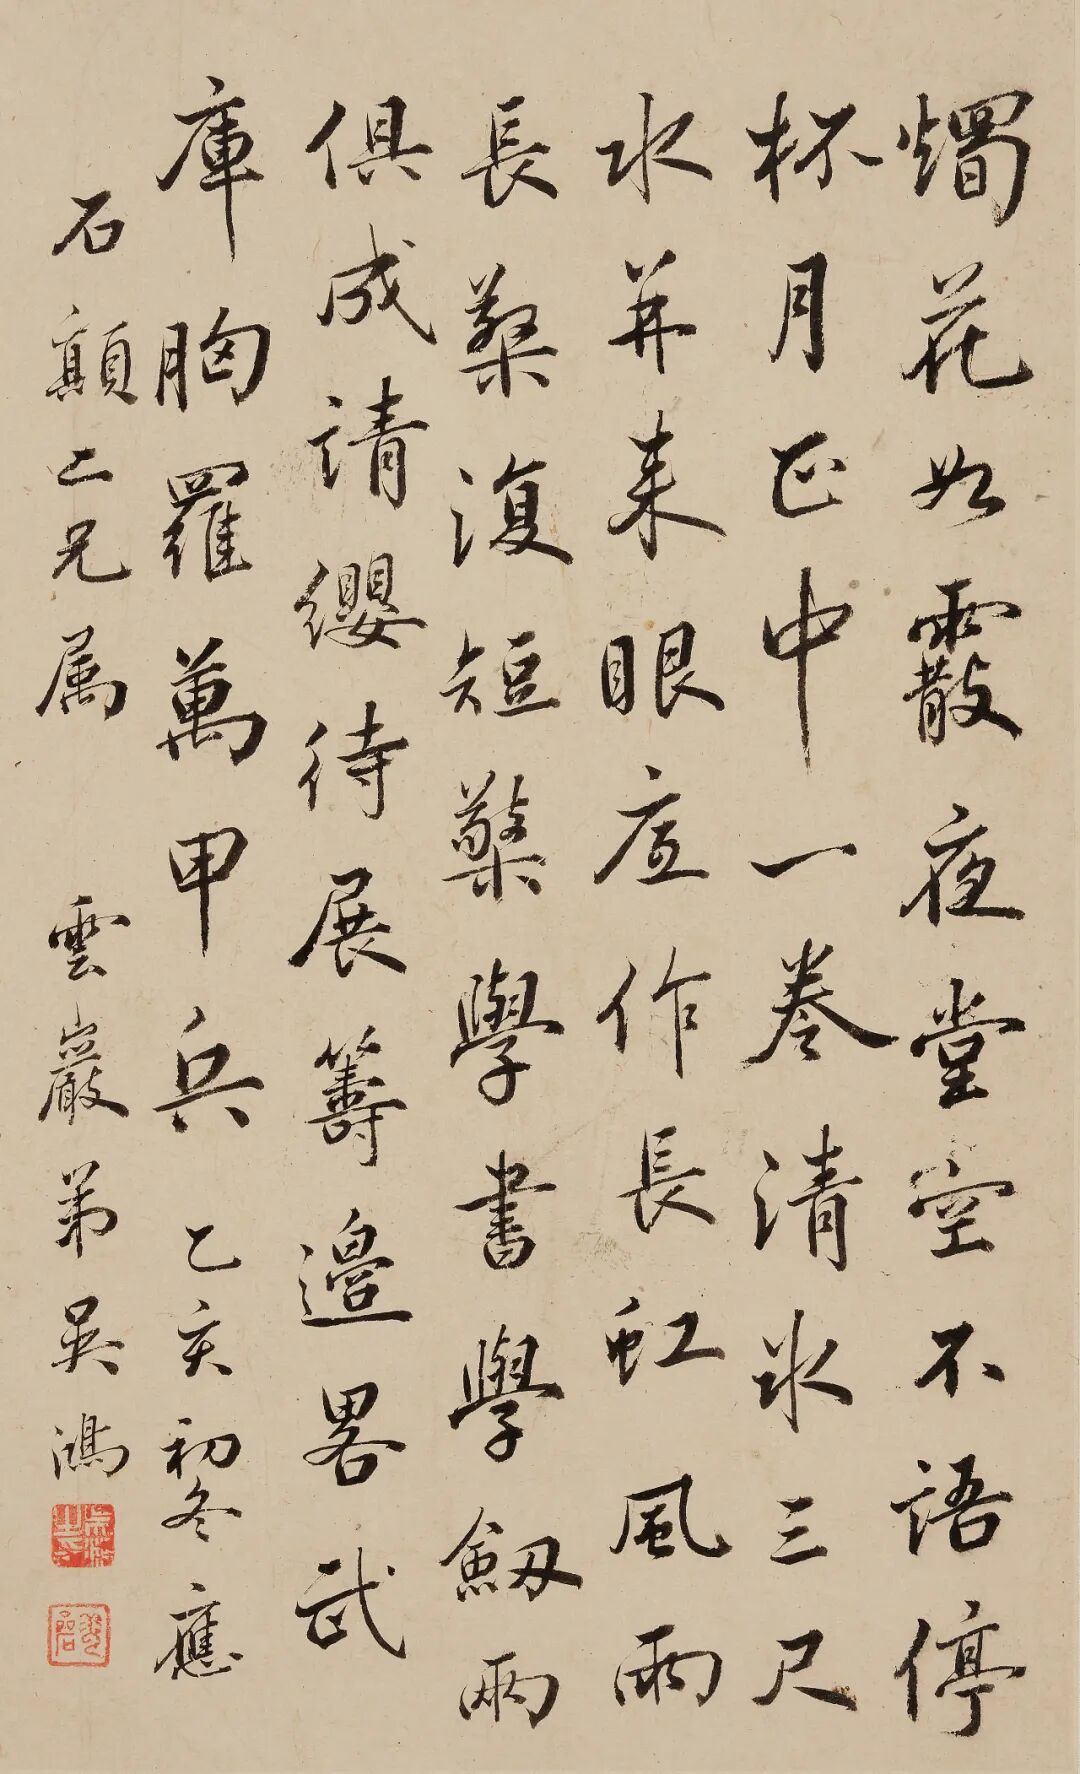 燭花如霰夜堂空不語停
杯月正中一卷清冰三尺
水并来眼底作長虹風雨
長檠復短檠學書學釼兩
俱成請纓待展籌邊畧武
庫胸羅萬甲兵 乙亥初冬應
石顛二兄属 雲巖弟吳鴻